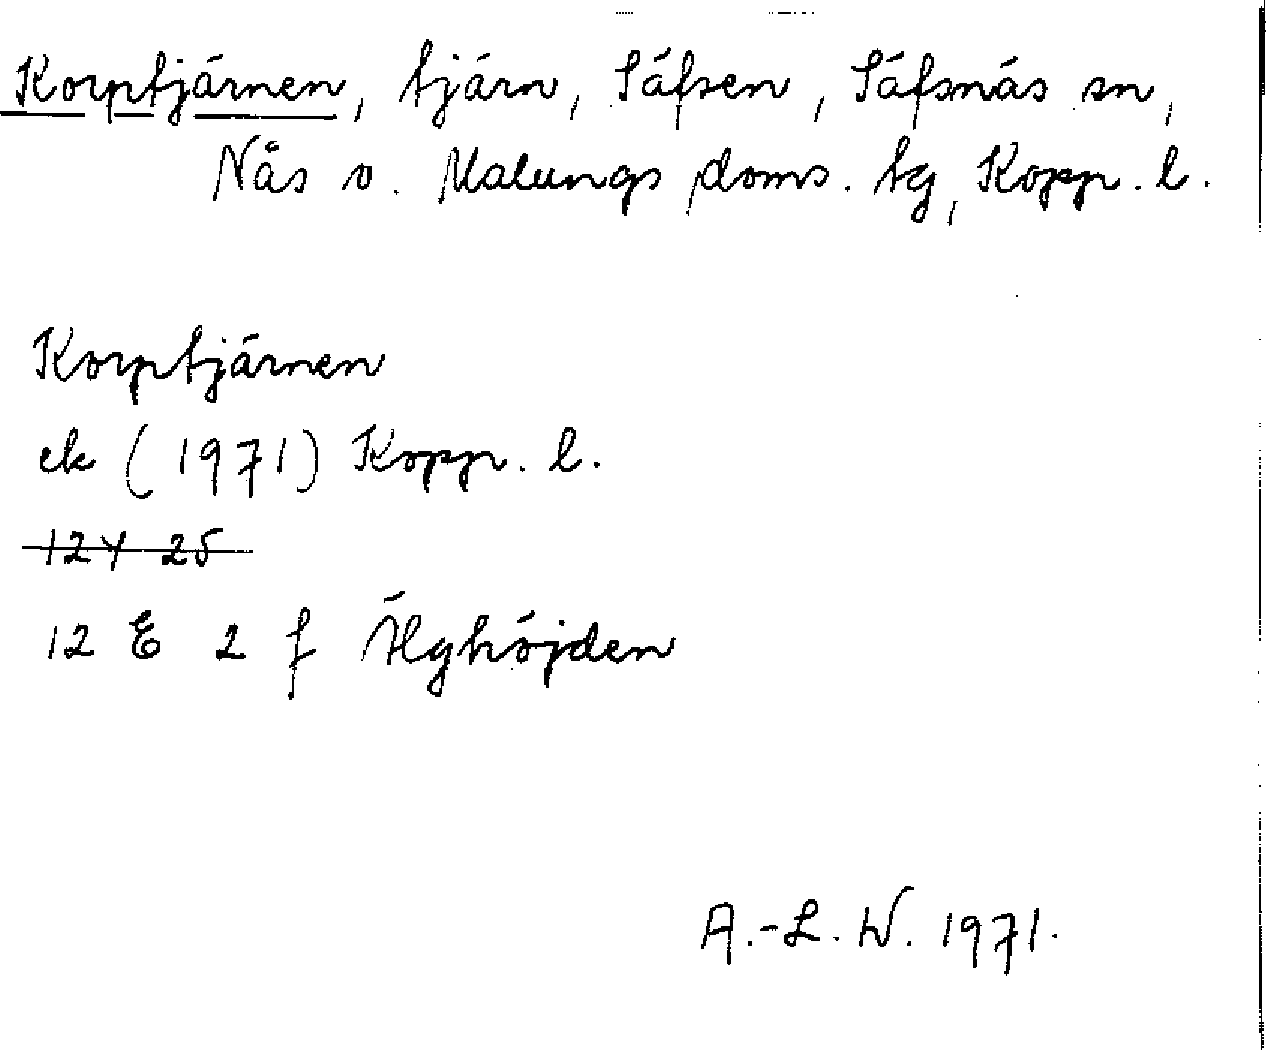 Korptjärnen, tjärn, Säfsen, Säfsnäs sn,
Nås o. Malungs doms. tg, Kopp. l.
Korptjärnen
ek (1971) Kopp. l.
12Y 25
12 E 2 f Älghöjden
A.-L. W. 1971.